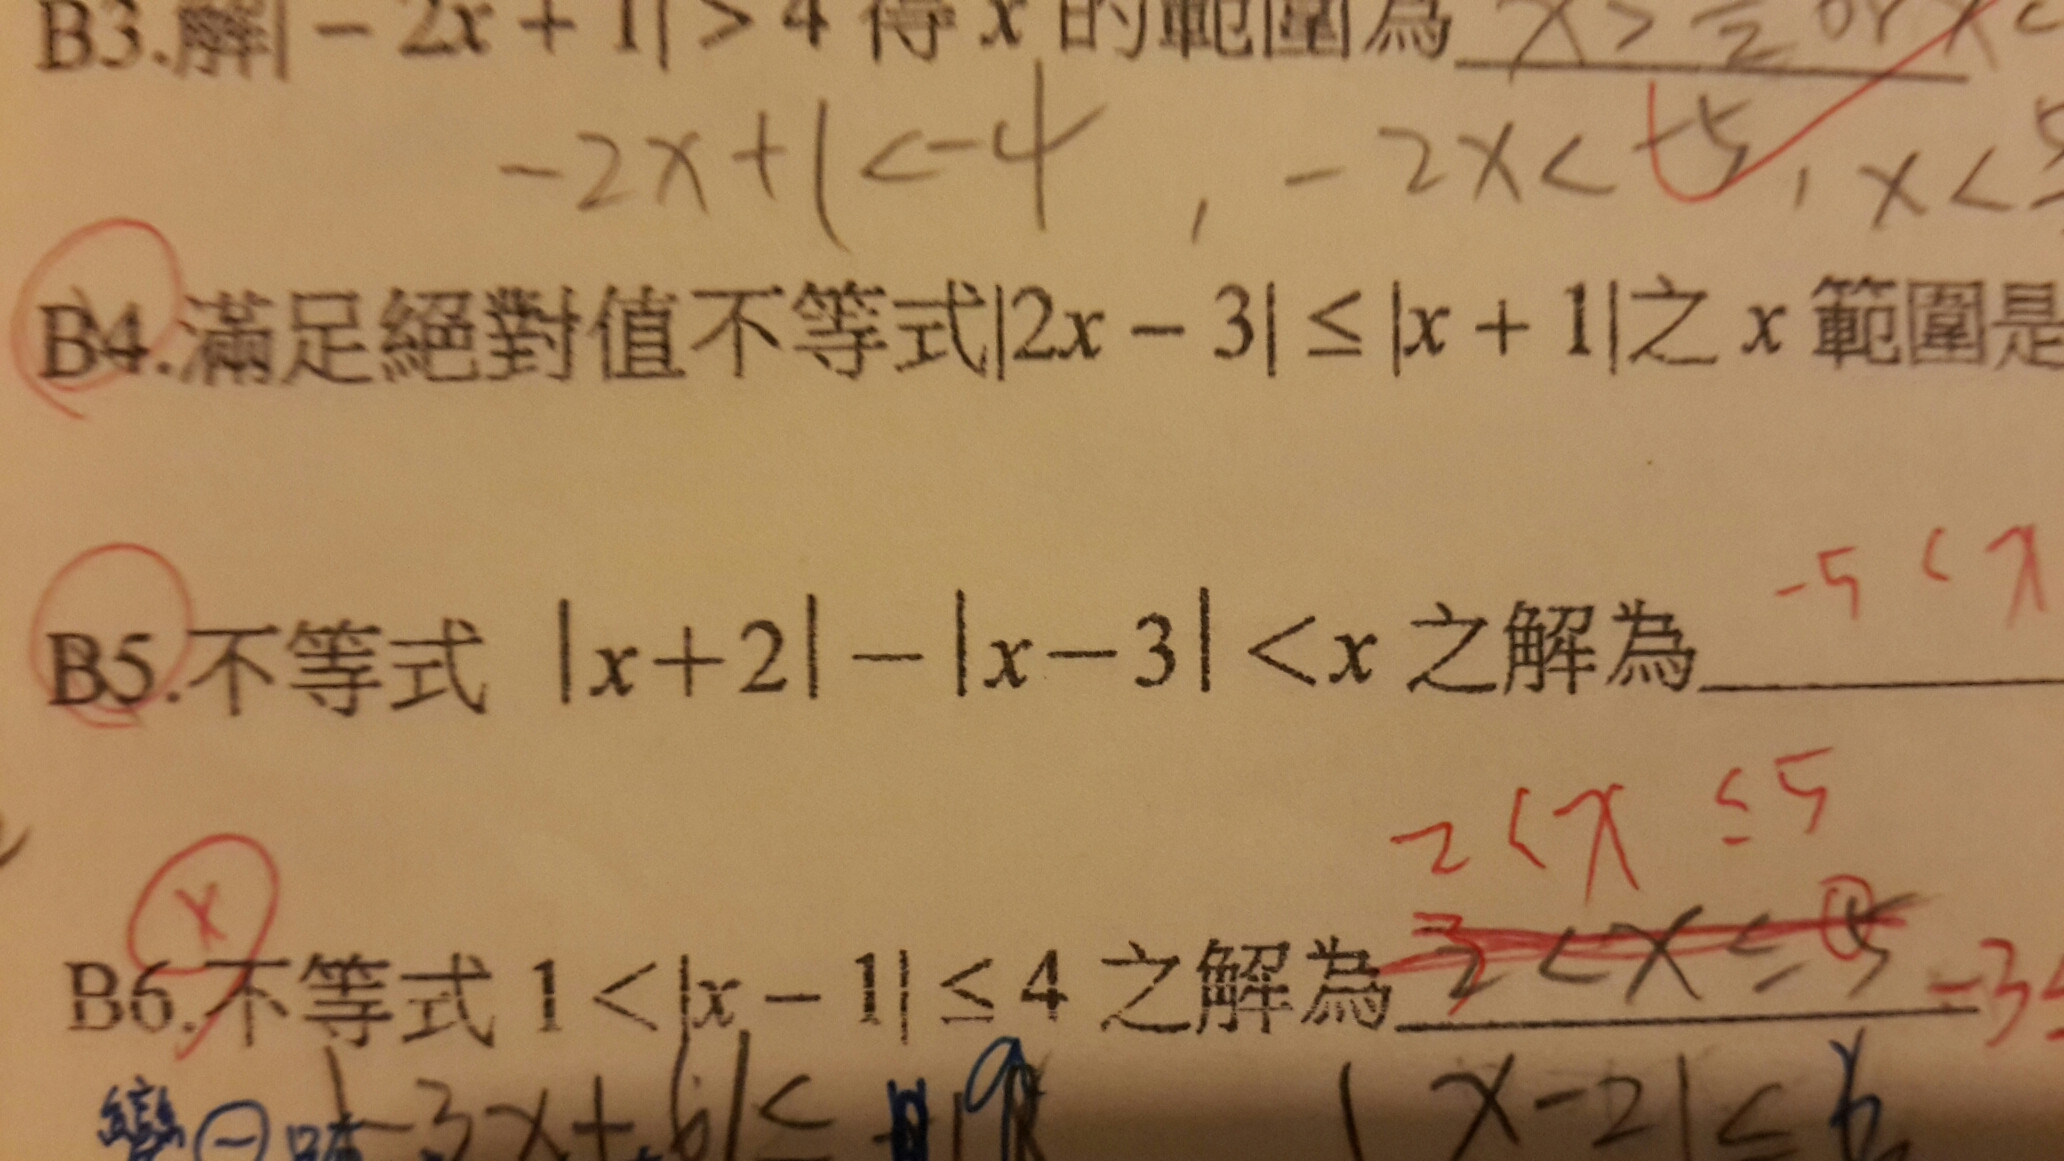 B3.解|－2x＋1|＞4 得 x 的範圍為 x > or x <
-2x+1<-4 , -2x<-5, x<
B4.滿足絕對值不等式|2x－3|≤|x＋1|之 x 範圍是
-5 < x
B5.不等式 |x＋2|－|x－3|＜x 之解為
2<x ≤5
x
B6.不等式 1＜|x－1|≤4 之解為 <x≤5 -3≤
變 ㊀ 號 |-3x+6|≤ 9 |x-2|≤